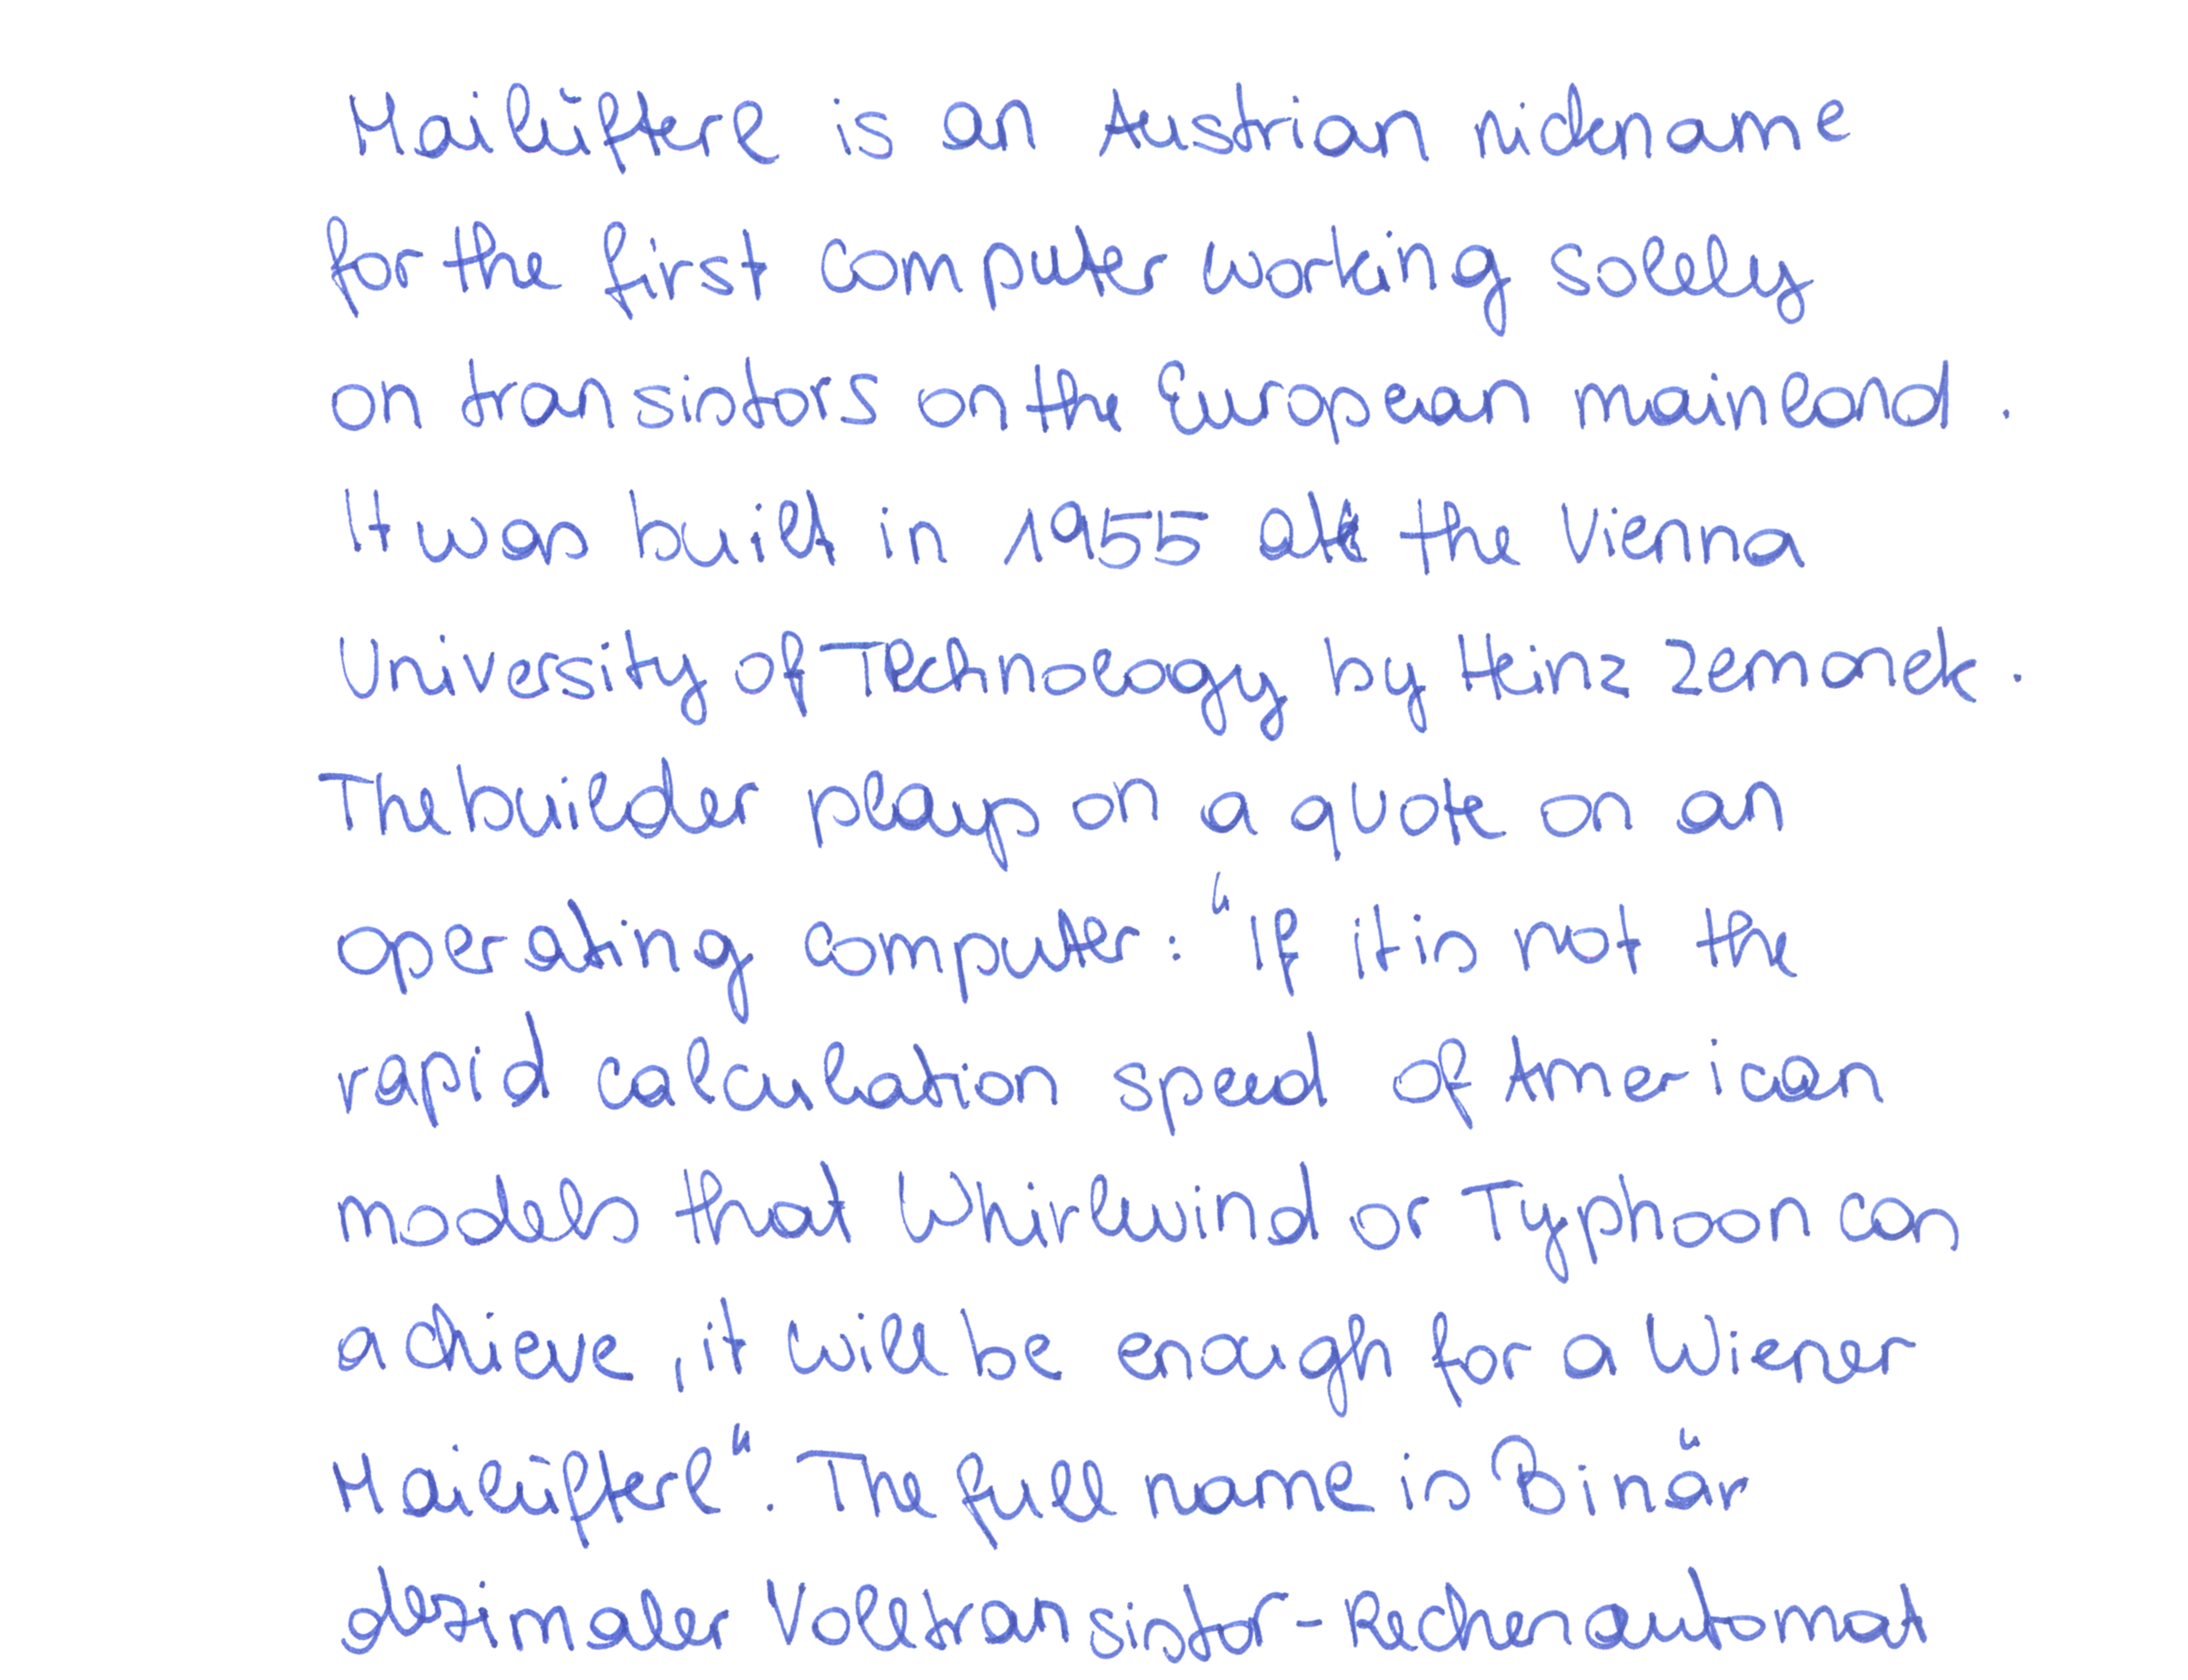 Mailüfterl is an Austrian nickname
for the first computer working solely
on transistors on the European mainland.
It was built in 1955 at the Vienna
University of Technology by Heinz Zemanek.
The builder plays on a quote on an
operating computer: "If it is not the
rapid calculation speed of American
models that Whirlwind or Typhoon can
achieve, it will be enough for a Wiener
Mailüfterl". The full name is Binär
dezimaler Volltransistor-Rechenautomat